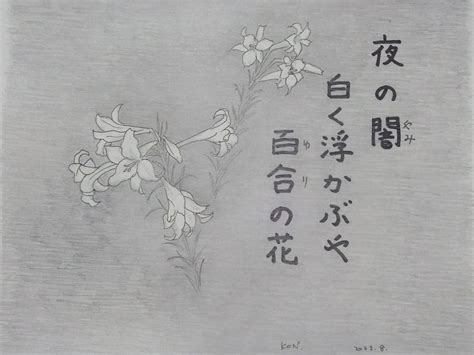 夜の闇
やみ
白く浮かぶや
百合の花
ゆり
KON.
2022.8.